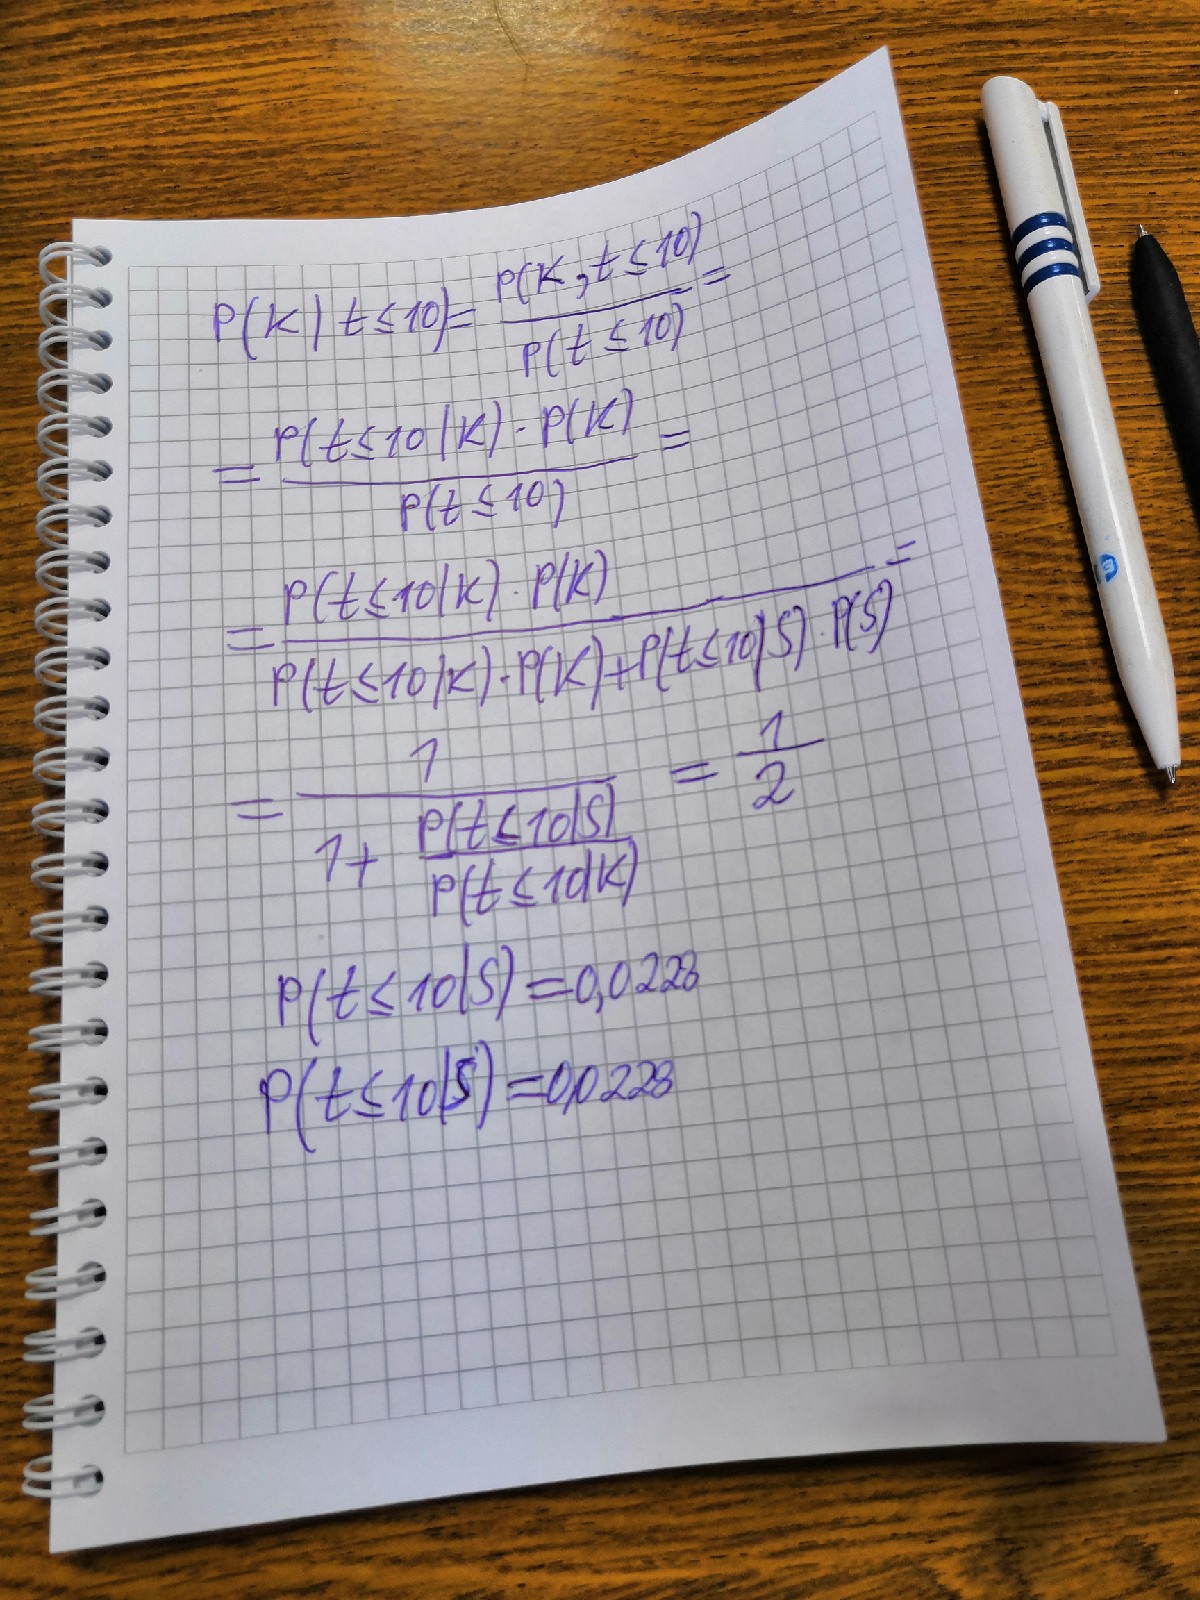 P(K|t≤10)= P(K,t≤10)/P(t≤10) =
= P(t≤10|K)·P(K)/P(t≤10) =
= P(t≤10|K)·P(K)/P(t≤10|K)·P(K)+P(t≤10|S)·P(S) =
= 1/1+ P(t≤10|S)/P(t≤10|K) = 1/2
P(t≤10|S)=0,0228
P(t≤10|S)=0,0228